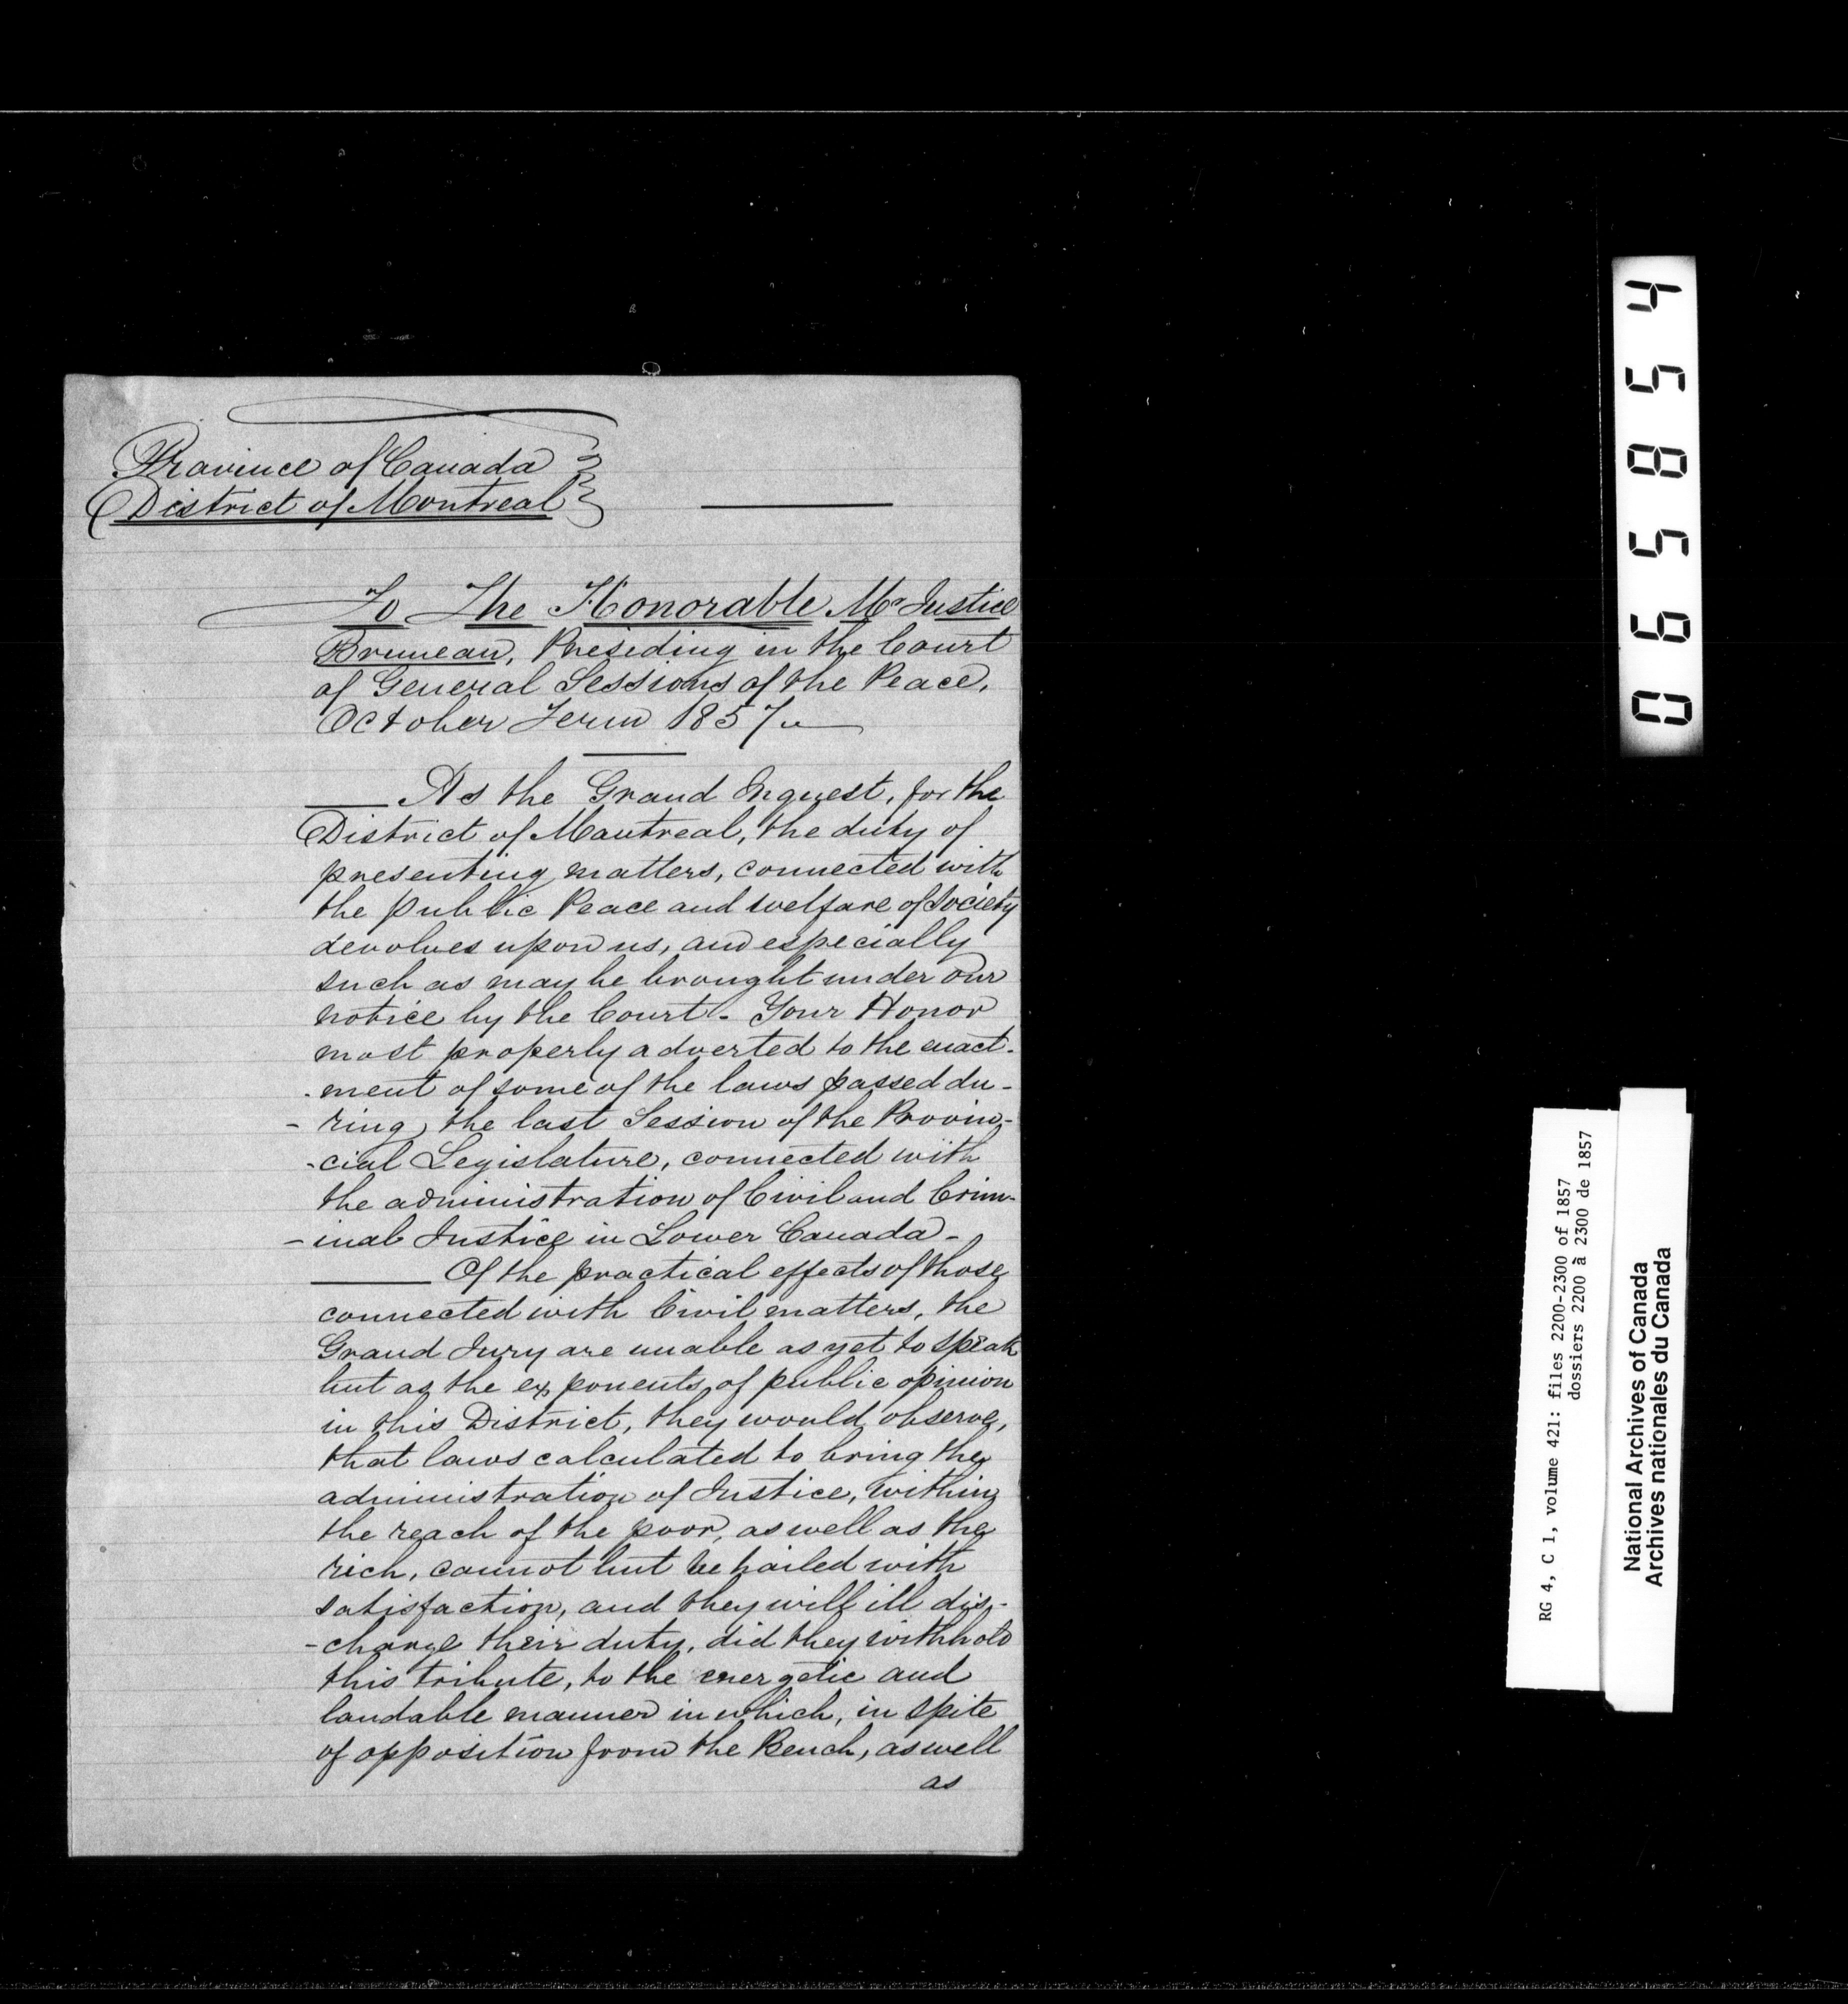 Province of Canada
District of Montreal
To The Honorable Mr Justice
Bruneau, Presiding in the Court
of General Sessions of the Peace,
October Term 1857
As the Grand Inquest, for the
District of Montreal, the duty of
presenting matters, connected with
the public Peace and welfare of Society
devolves upon us, and especially
such as may be brought under our
notice by the Court. Your Honor
most properly adverted to the enact-
-ment of some of the laws passed du-
-ring the last Session of the Provin-
-cial Legislature, connected with
the administration of Civil and Crim-
-inal Justice in Lower Canada-
Of the practical effects of those
connected with Civil matters, the
Grand Jury are unable as yet to speak
but as the exponents of public opinion
in this District, they would observe,
that laws calculated to bring the
administration of Justice, within
the reach of the poor, as well as the
rich, cannot but be hailed with
satisfaction, and they will ill dis-
-charge their duty, did they withhold
this tribute, to the energetic and
laudable manner in which, in spite
of opposition from the Bench, as well
as
065854
RG 4, C 1, volume 421: files 2200-2300 of 1857
dossiers 2200 à 2300 de 1857
National Archives of Canada
Archives nationales du Canada